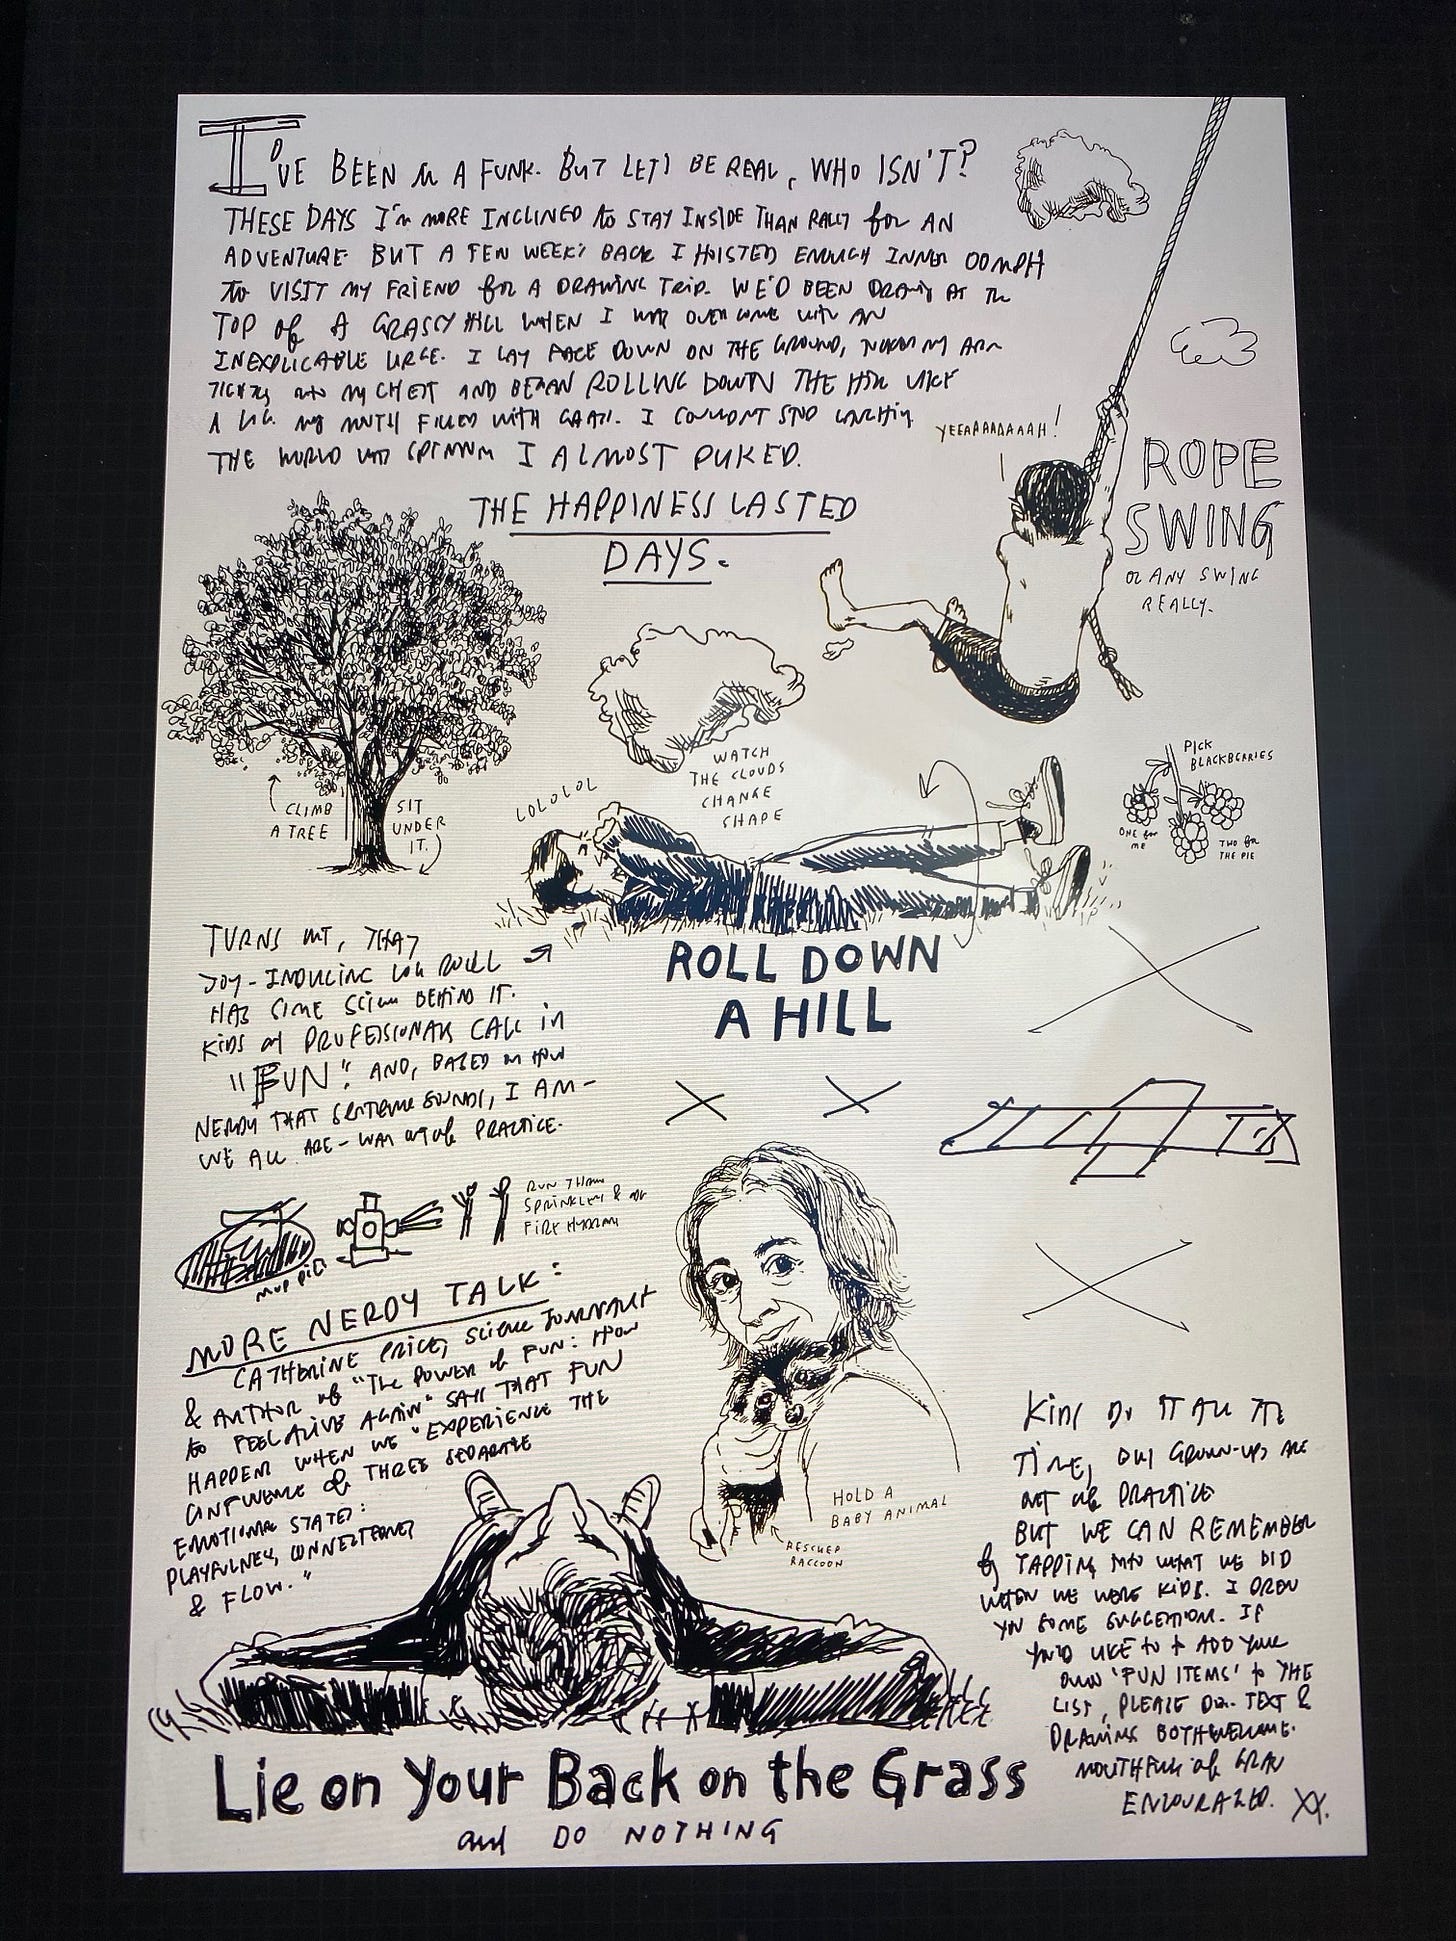 I'VE BEEN IN A FUNK. BUT LET'S BE REAL, WHO ISN'T?
THESE DAYS I'M MORE INCLINED to STAY INSIDE THAN RALLY for AN
ADVENTURE BUT A FEW WEEKS BACK I HOISTED ENOUGH INNER OOMPH
to VISIT MY FRIEND for A DRAWING TRIP. WE'D BEEN DRAWING AT THE
TOP of A GRASSY HILL WHEN I WAS OVERCOME WITH AN
INEXPLICABLE URGE. I LAY FACE DOWN ON THE GROUND, MY ARMS
TIGHTLY INTO MY CHEST AND BEGAN ROLLING DOWN THE HILL LIKE
A LOG. MY MOUTH FILLED WITH GRASS. I COULDN'T STOP LAUGHING
THE WORLD WAS SPINNING I ALMOST PUKED.
THE HAPPINESS LASTED
DAYS.
YEEAAAAAAAAH!
ROPE
SWING
OR ANY SWING
REALLY.
CLIMB
A TREE
SIT
UNDER
IT.
WATCH
THE CLOUDS
CHANGE
SHAPE
LOLOLOL
PICK
BLACKBERRIES
ONE for
ME
TWO for
THE PIE
ROLL DOWN
A HILL
TURNS OUT, THAT
JOY-INDUCING LOG ROLL
HAS SOME SCIENCE BEHIND IT.
KIDS and PROFESSIONALS CALL it
"FUN". AND, BASED on HOW
NERDY THAT SENTENCE SOUNDS, I AM -
WE ALL ARE - WAY out of PRACTICE.
RUN THRU
SPRINKLER & OR
FIRE HYDRANT
MUD PIES
MORE NERDY TALK:
CATHERINE PRICE, SCIENCE JOURNALIST
& AUTHOR of "The POWER of FUN: HOW
to FEEL ALIVE AGAIN" SAYS THAT FUN
HAPPENS WHEN WE "EXPERIENCE THE
CONFLUENCE of THREE SEPARATE
EMOTIONAL STATES:
PLAYFULNESS, CONNECTEDNESS
& FLOW."
HOLD A
BABY ANIMAL
RESCUED
RACCOON
KIDS DO IT ALL THE
TIME, BUT GROWN-UPS ARE
OUT of PRACTICE
BUT WE CAN REMEMBER
by TAPPING INTO WHAT WE DID
WHEN WE WERE KIDS. I DREW
YOU SOME SUGGESTIONS. IF
YOU'D LIKE to ADD YOUR
OWN 'FUN ITEMS' to THE
LIST, PLEASE DO. TEXT &
DRAWINGS BOTH WELCOME.
MOUTHFUL of GRASS
ENCOURAGED. XX.
Lie on Your Back on the Grass
and DO NOTHING